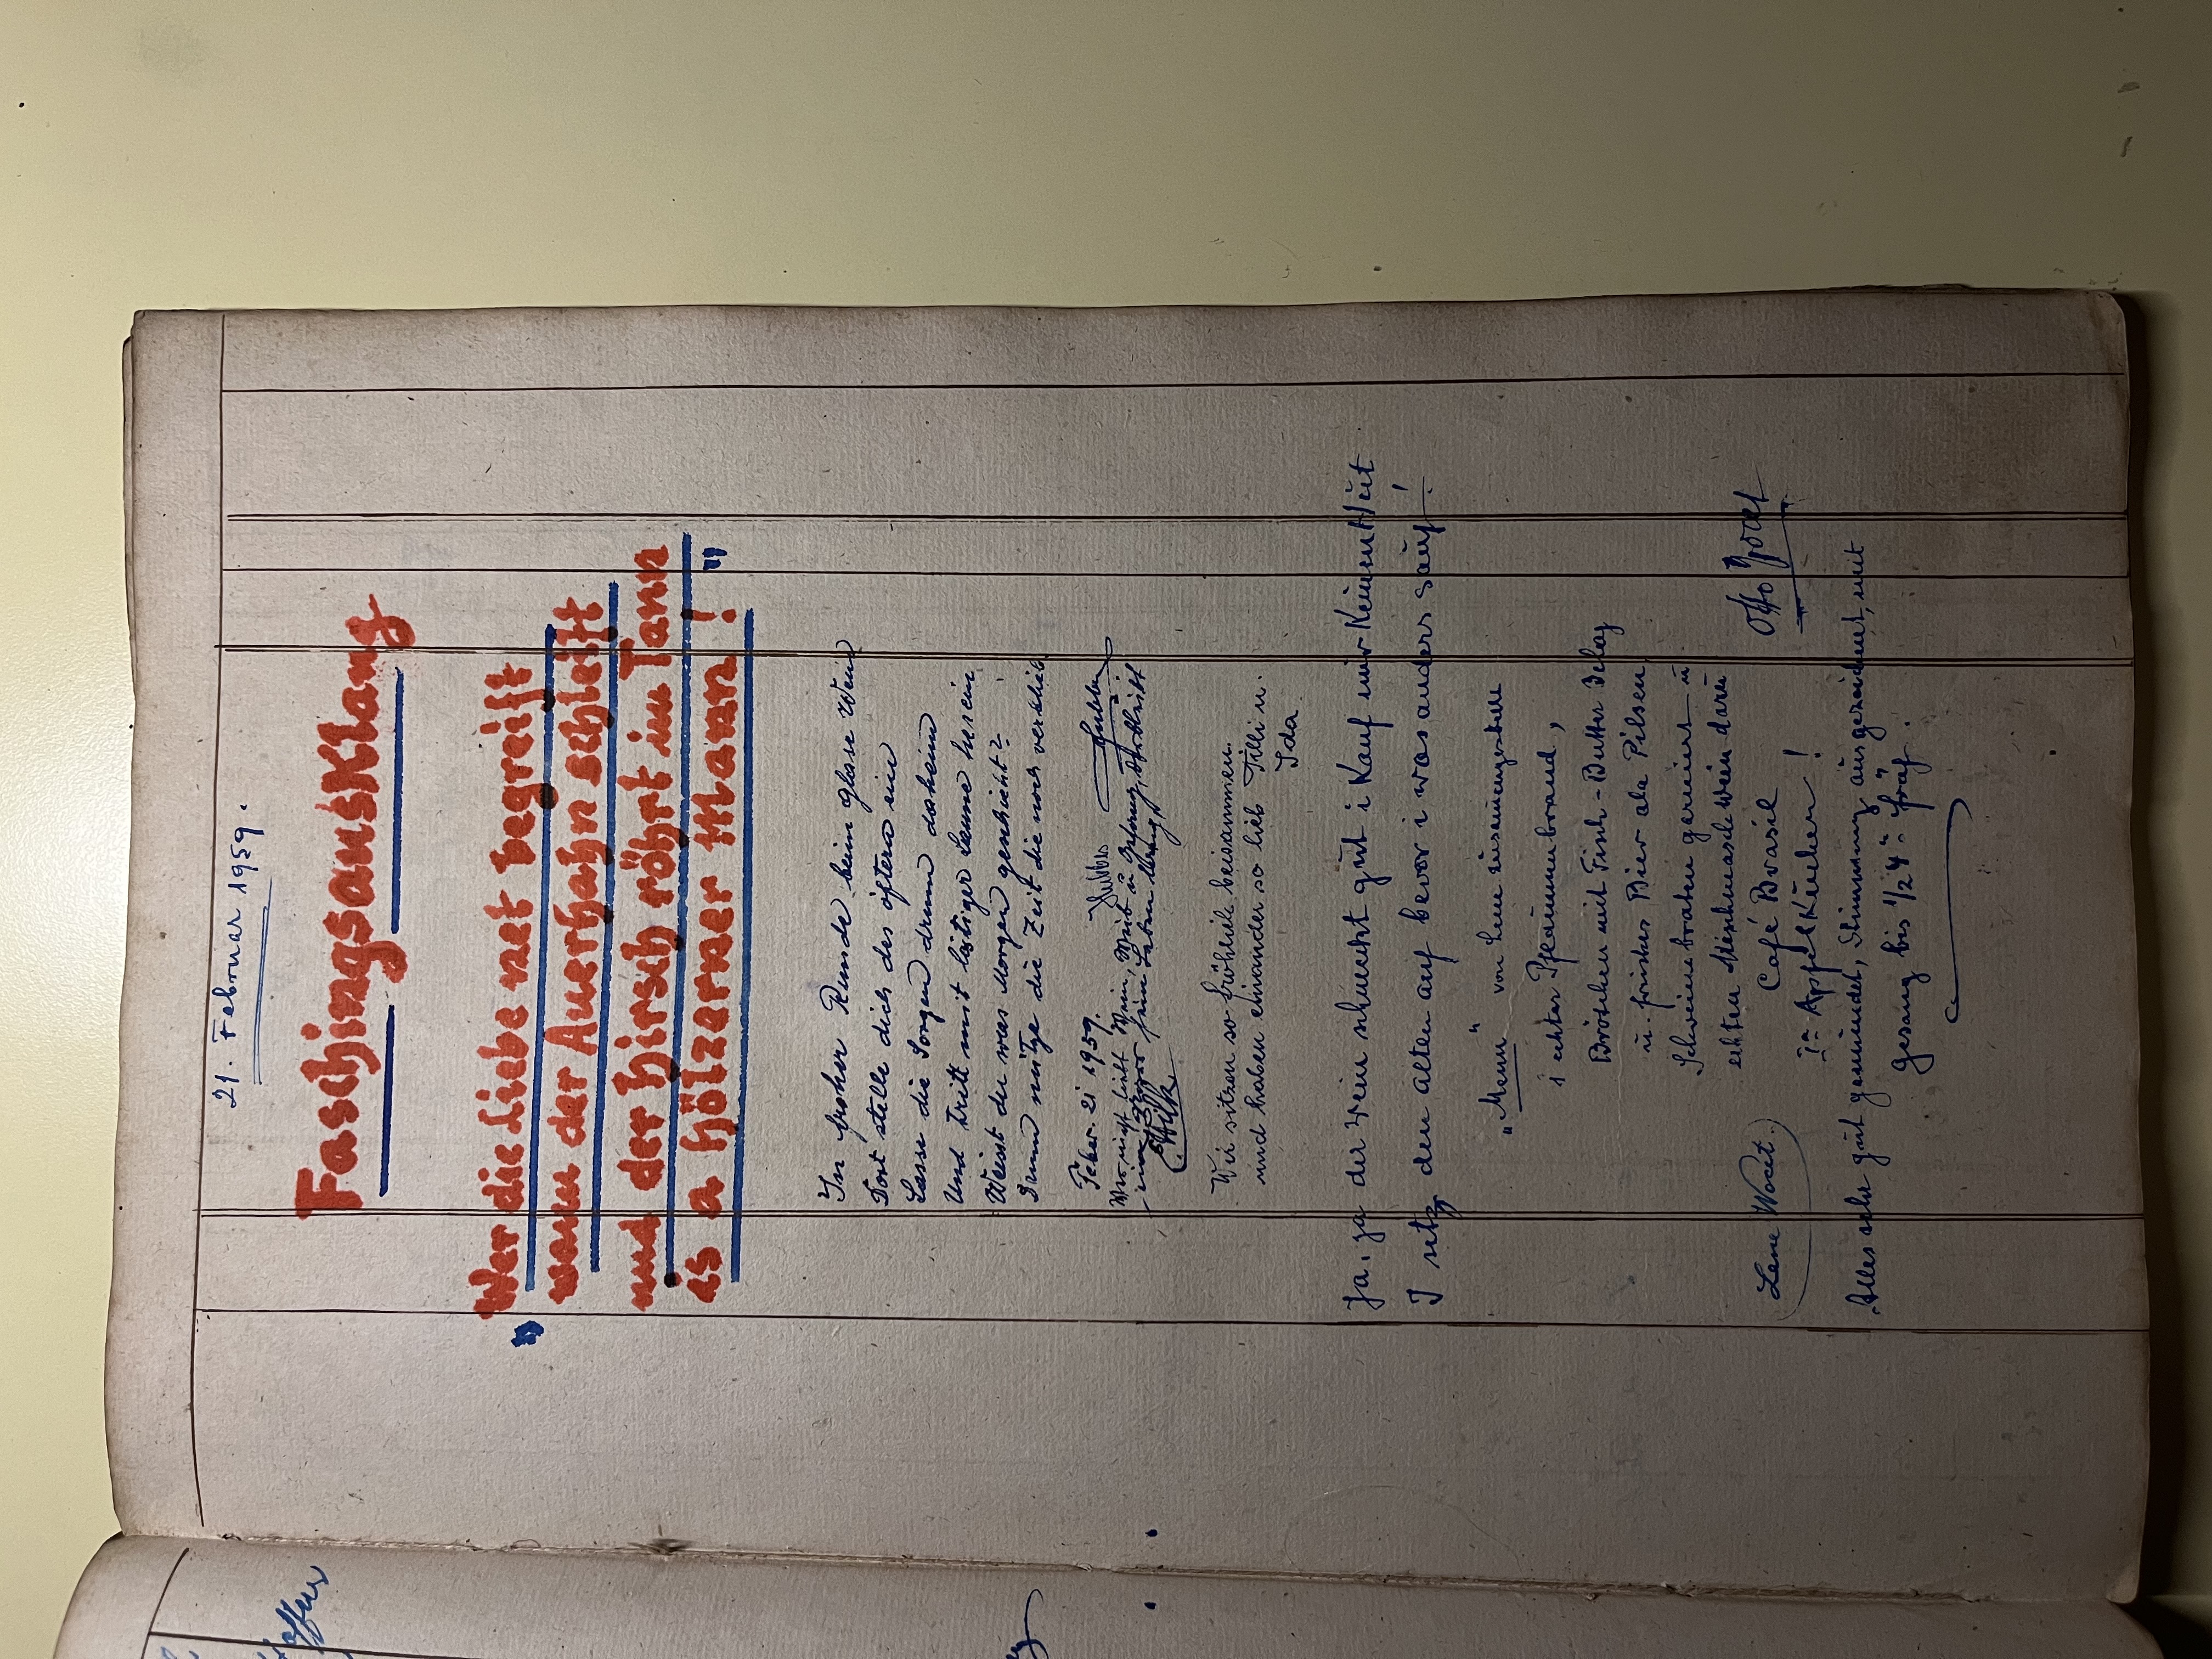 21. Februar 1959.
Faschingsausklang
"Wer die Liebe net begreift
wann der Auerhahn schleift
und der Hirsch röhrt im Tann
is a hölzerner Mann!"
In froher Runde beim Glase Wein
Dort stelle dich des öfteren ein
Lasse die Sorgen drum daheim
Und tritt mit lustiger Laune herein
Weisst du was Morgen geschieht?
Drum nütze die Zeit die noch verblieb
Feber. 21 1959.
Wer nicht liebt Wein, Weib u Gesang, der bleibt
ein Narr sein Leben lang,
Wir sitzen so fröhlich beisammen.
und haben einander so lieb Tilli u.
Ida
Ja, ja der Wein schmeckt gut i kauf mir kein Hut
I setz den alten auf bevor i was anders sauf!
"Menu" von Lene zusammengestellt
1 echter Pflaumenbrand,
Brötchen mit Fisch-Butter Belag
u. frisches Bier ala Pilsen
Schweinebraten garniert u
echten Mischmaschwein dazu
Café Brasil
Ia Apfelkuchen!
Lene Wocet.
Otto
Alles sehr gut gemundet, Stimmung ausgezeichnet, mit
Gesang bis 1/2 4 früh.